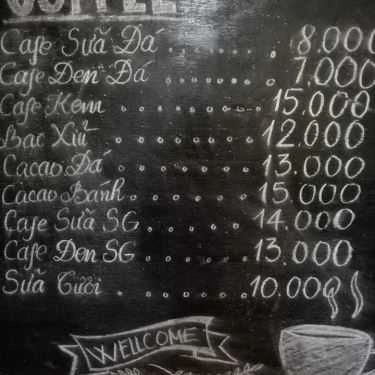 COFFEE
Cafe Sữa Đá ........ 8.000
Cafe Đen Đá ....... 7.000
Cafe Kem ......... 15.000
Bạc Xỉu ........ 12.000
Cacao Đá ....... 13.000
Cacao Bánh ...... 15.000
Cafe Sữa SG ...... 14.000
Cafe Đen SG ...... 13.000
Sữa Tươi ....... 10.000
WELLCOME